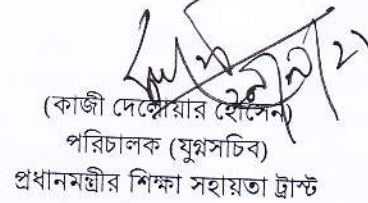 (কাজী দেলোয়ার হোসেন)
পরিচালক (যুগ্মসচিব)
প্রধানমন্ত্রীর শিক্ষা সহায়তা ট্রাস্ট